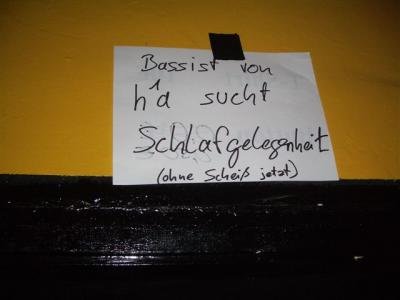 Bassist von
h'a sucht
Schlafgelegenheit
(ohne Scheiß jetzt)